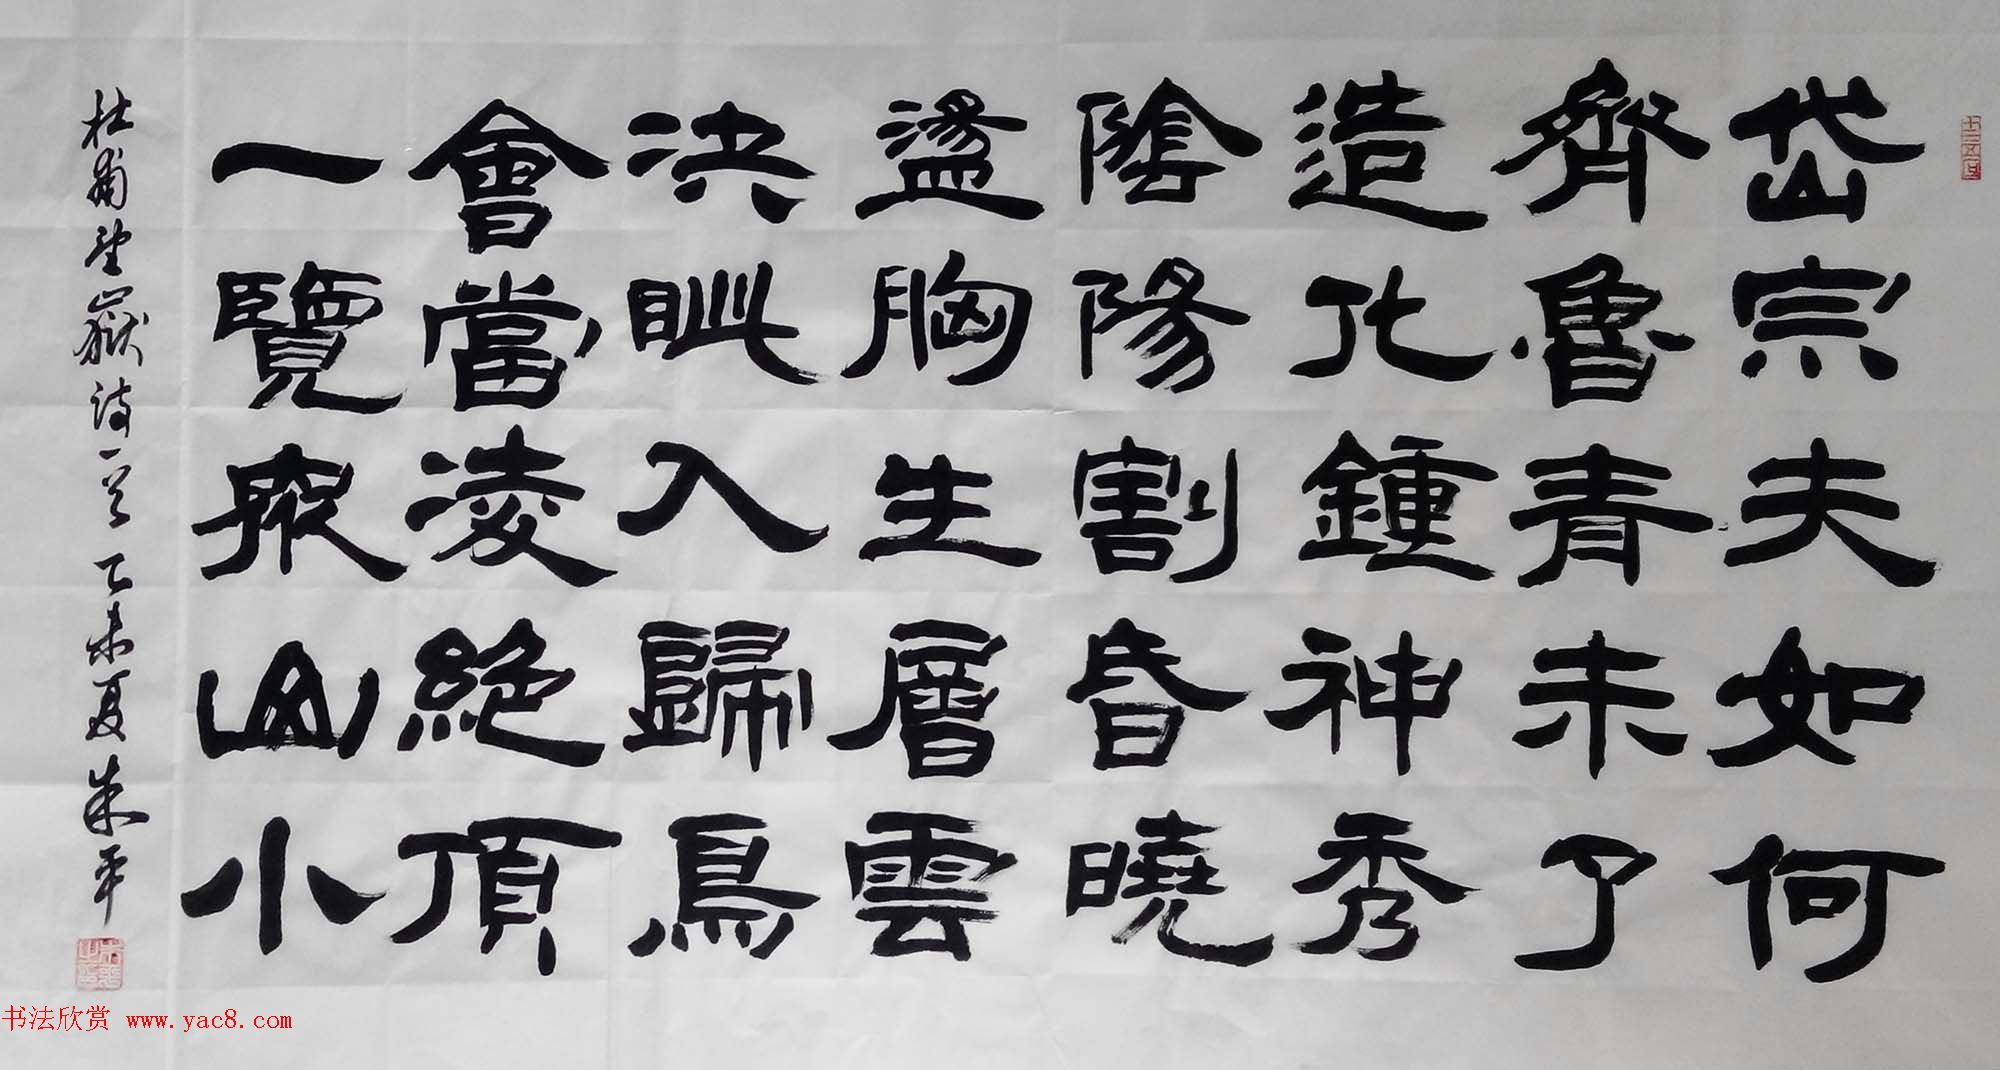 岱宗夫如何
齊魯青未了
造化鍾神秀
陰陽割昏曉
盪胸生層雲
決眦入歸鳥
會當凌絕頂
一覽眾山小
杜甫望嶽诗一首 乙未夏 朱平
书法欣赏 www.yac8.com